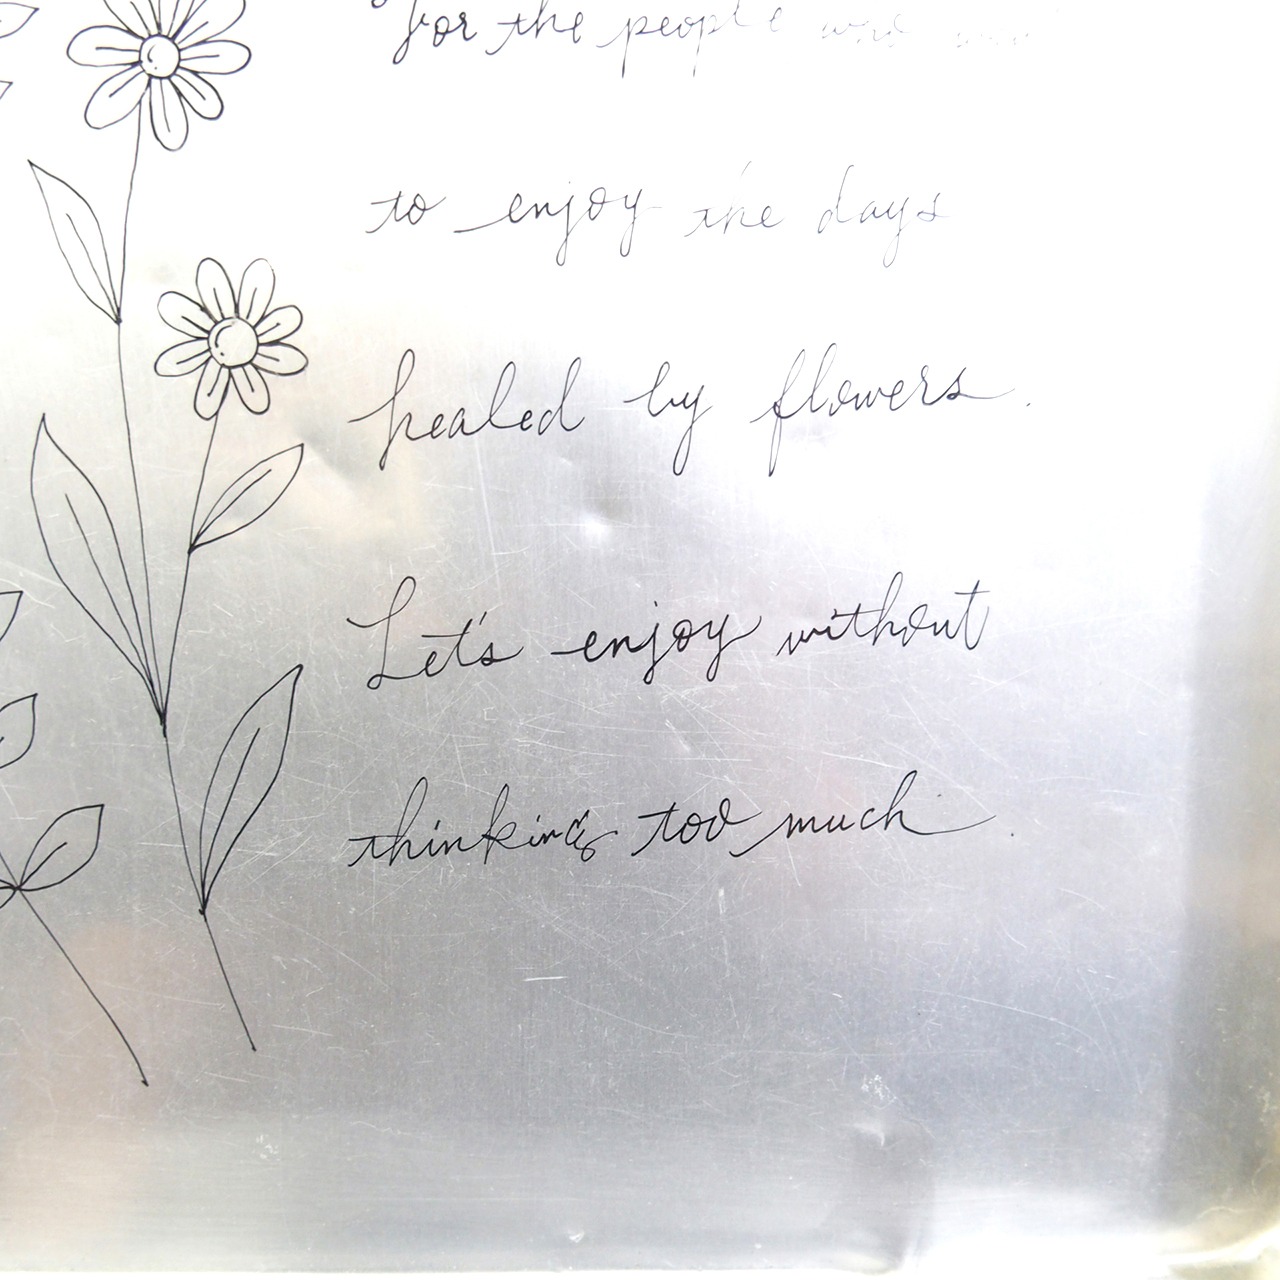 for the people who
to enjoy the days
healed by flowers.
Let's enjoy without
thinking too much.